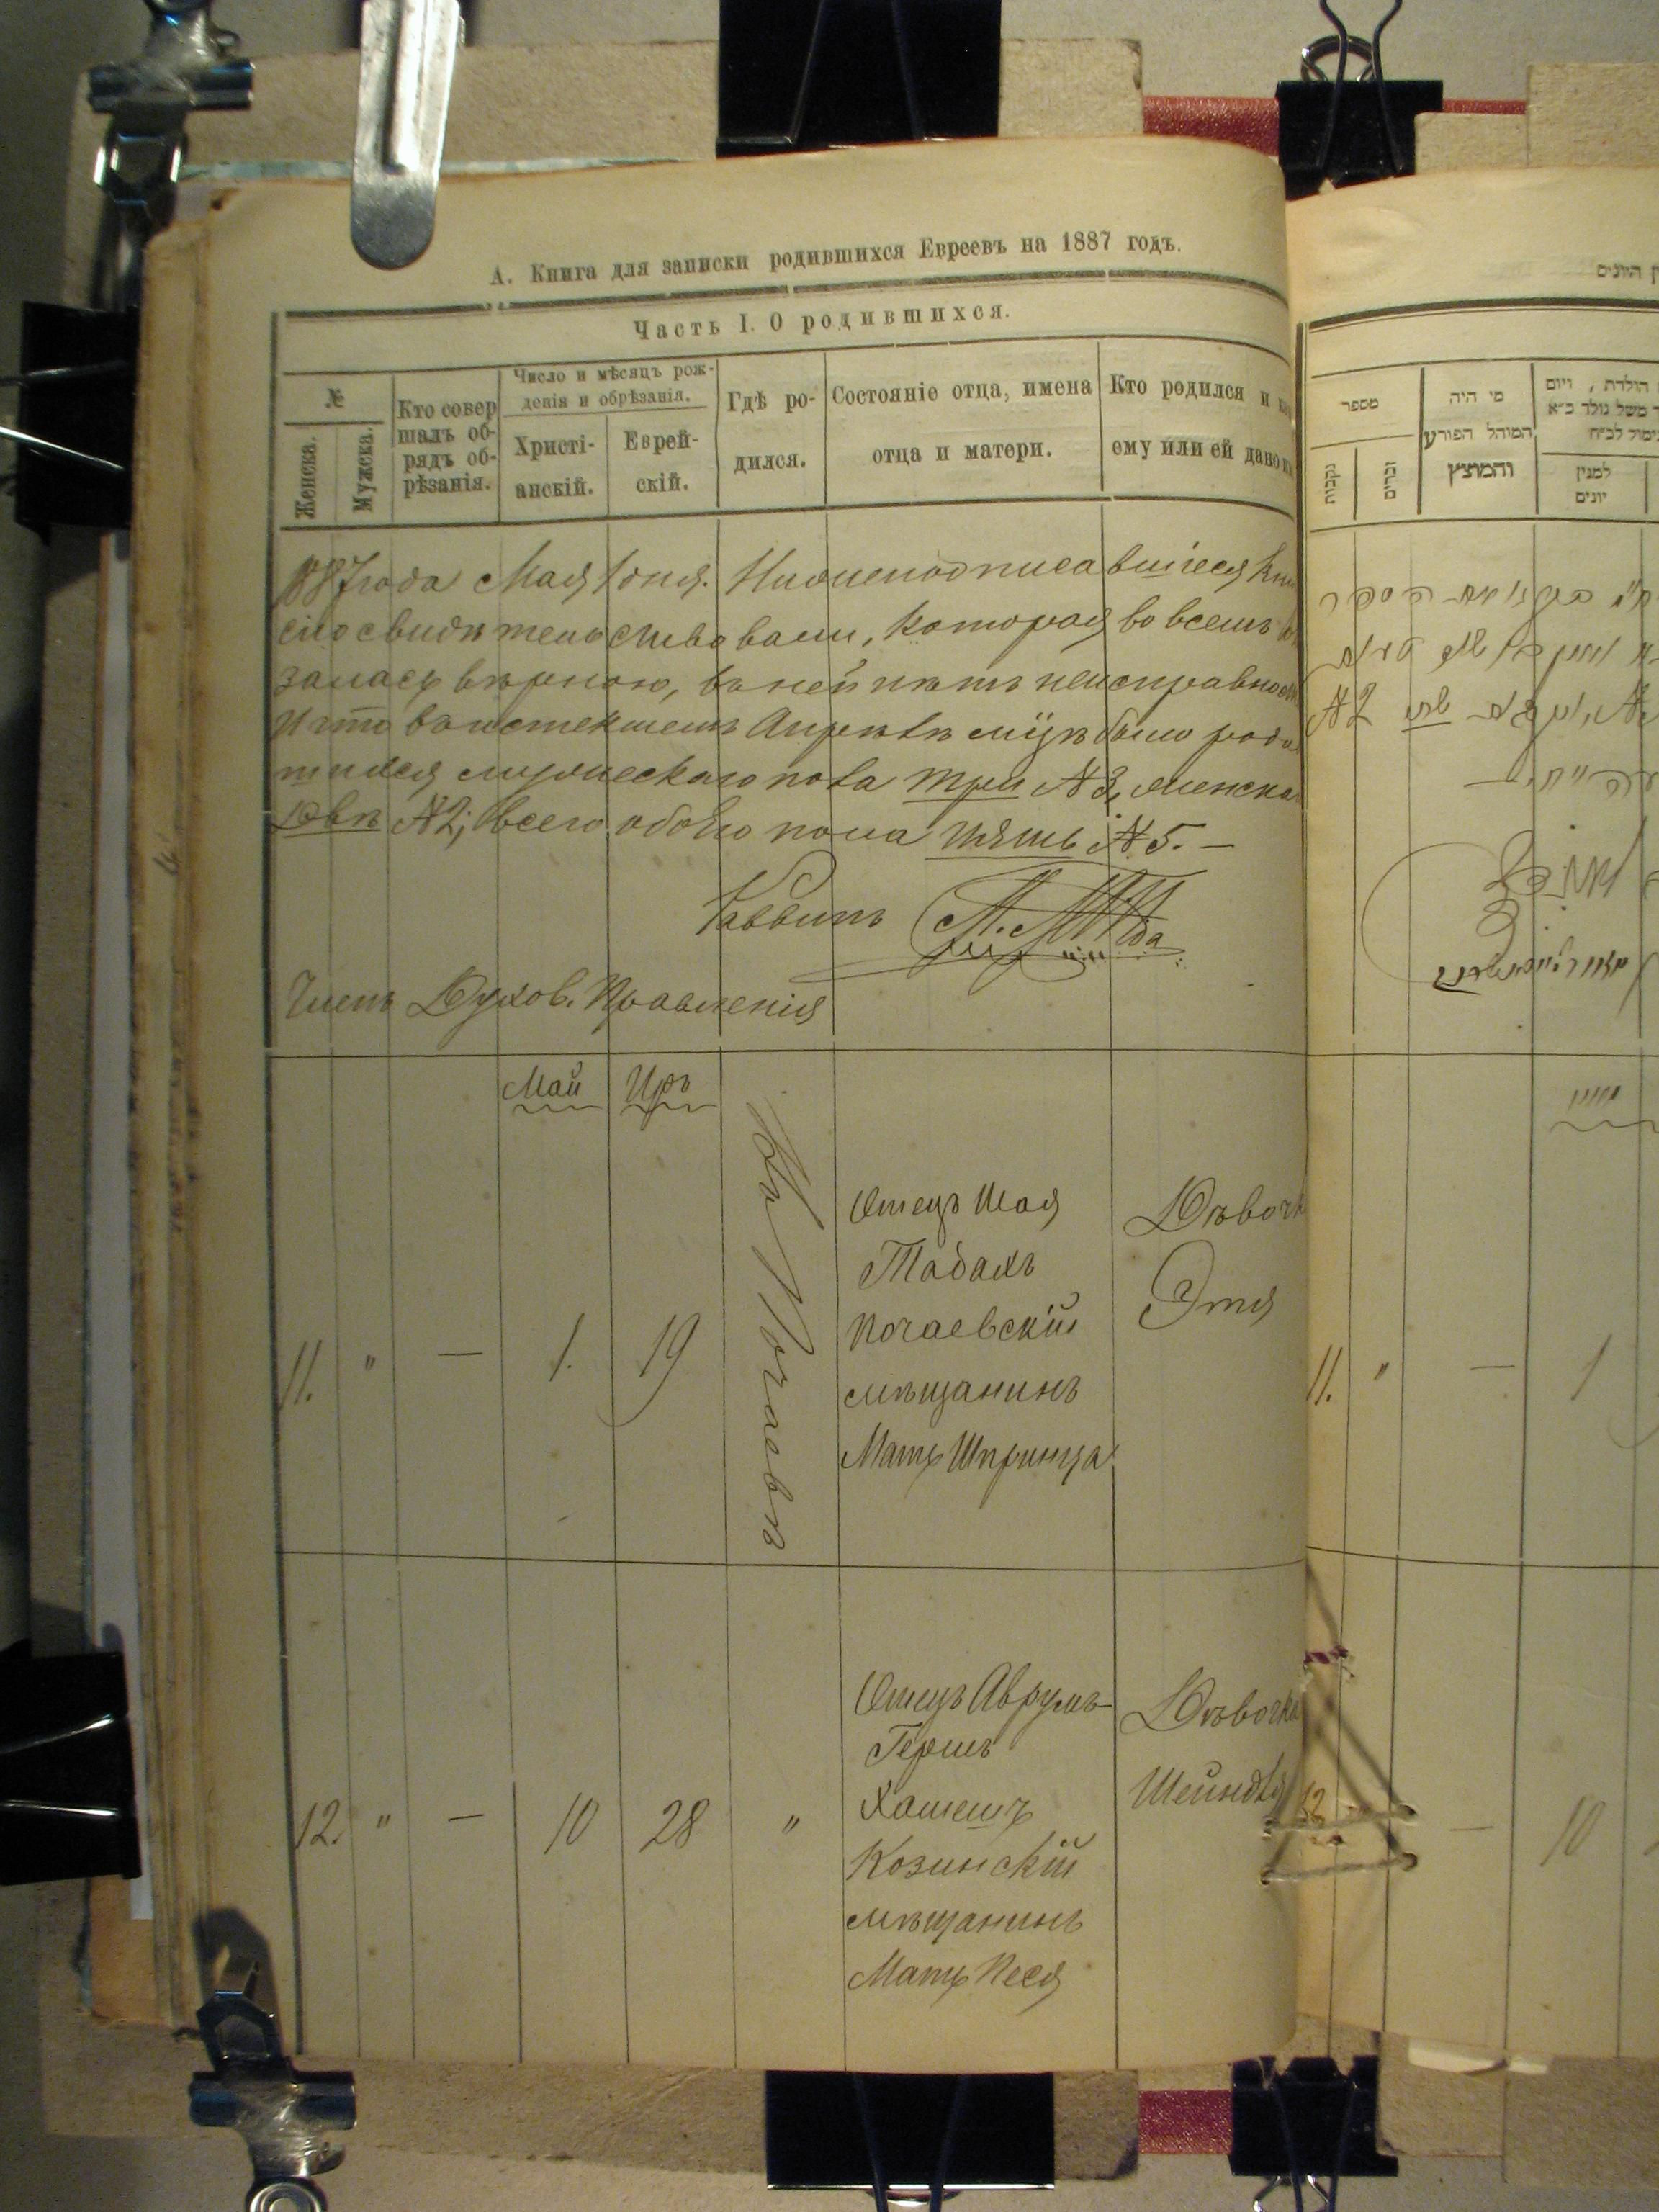 А. Книга для записки родившихся Евреевъ на 1887 годъ.
Часть I. О родившихся.
№
Женска.
Мужска.
Кто совер
шалъ об-
рядъ об-
рѣзанія.
Число и мѣсяцъ рож-
денія и обрѣзанія.
Христі-
анскій.
Еврей-
скій.
Гдѣ ро-
дился.
Состояніе отца, имена
отца и матери.
Кто родился и
ему или ей дано
1887 года Мая 1 дня. Нижеподписавшіеся
сію свидѣтельствовали, которая во всемъ
залась вѣрною, въ ней нѣтъ неисправно
и что въ истекшемъ Апрѣлѣ м-цѣ было роди
шихся мужескаго пола три №3, женска
двѣ №2, всего обоего пола пять №5. —
Раввинъ
Членъ Духов. Правленія
Май
Иръ
11. " — 1. 19
Въ Почаевѣ
Отецъ Шая
Табакъ
Почаевскій
мѣщанинъ
Мать Шпринца
Дѣвочк
Этя
12. " — 10 28 "
Отецъ Аврумъ-
Гершъ
Козинскій
мѣщанинъ
Мать Песя
Дѣвочка
Шейндля
מספר
נקבות
זכרים
מי היה
המוהל הפורע
והמוצץ
הולדת, ויום
למנין
יונים
№ 2
11. " — 1
12 — 10